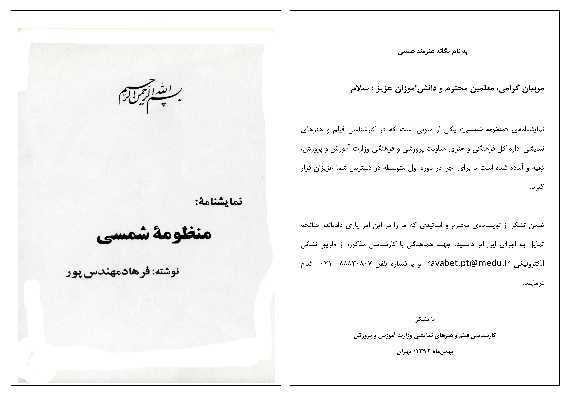 بسم الله الرحمن الرحیم
نمایشنامهٔ:
منظومهٔ شمسی
نوشته: فرهاد مهندس پور
به نام یگانه هنرمند هستی
مربیان گرامی، معلمین محترم و دانش‌آموزان عزیز ؛ سلام
نمایشنامه‌ی «منظومه شمسی» یکی از متونی است که در کارشناسی فیلم و هنرهای
نمایشی اداره کل فرهنگی و هنری معاونت پرورشی و فرهنگی وزارت آموزش و پرورش،
تهیه و آماده شده است تا برای اجرا در دوره اول متوسطه در دسترس شما عزیزان قرار
گیرد.
ضمن تشکر از نویسنده‌ی محترم و اساتیدی که ما را در این امر یاری داده‌اند، چنانچه
تمایل به اجرای این اثر داشتید، جهت هماهنگی با کارشناسی مذکور، از طریق نشانی
الکترونیکی و یا شماره تلفن اقدام
فرمایید.
با تشکر
کارشناسی فیلم و هنرهای نمایشی وزارت آموزش و پرورش
بهمن‌ماه ۱۳۹۲- تهران